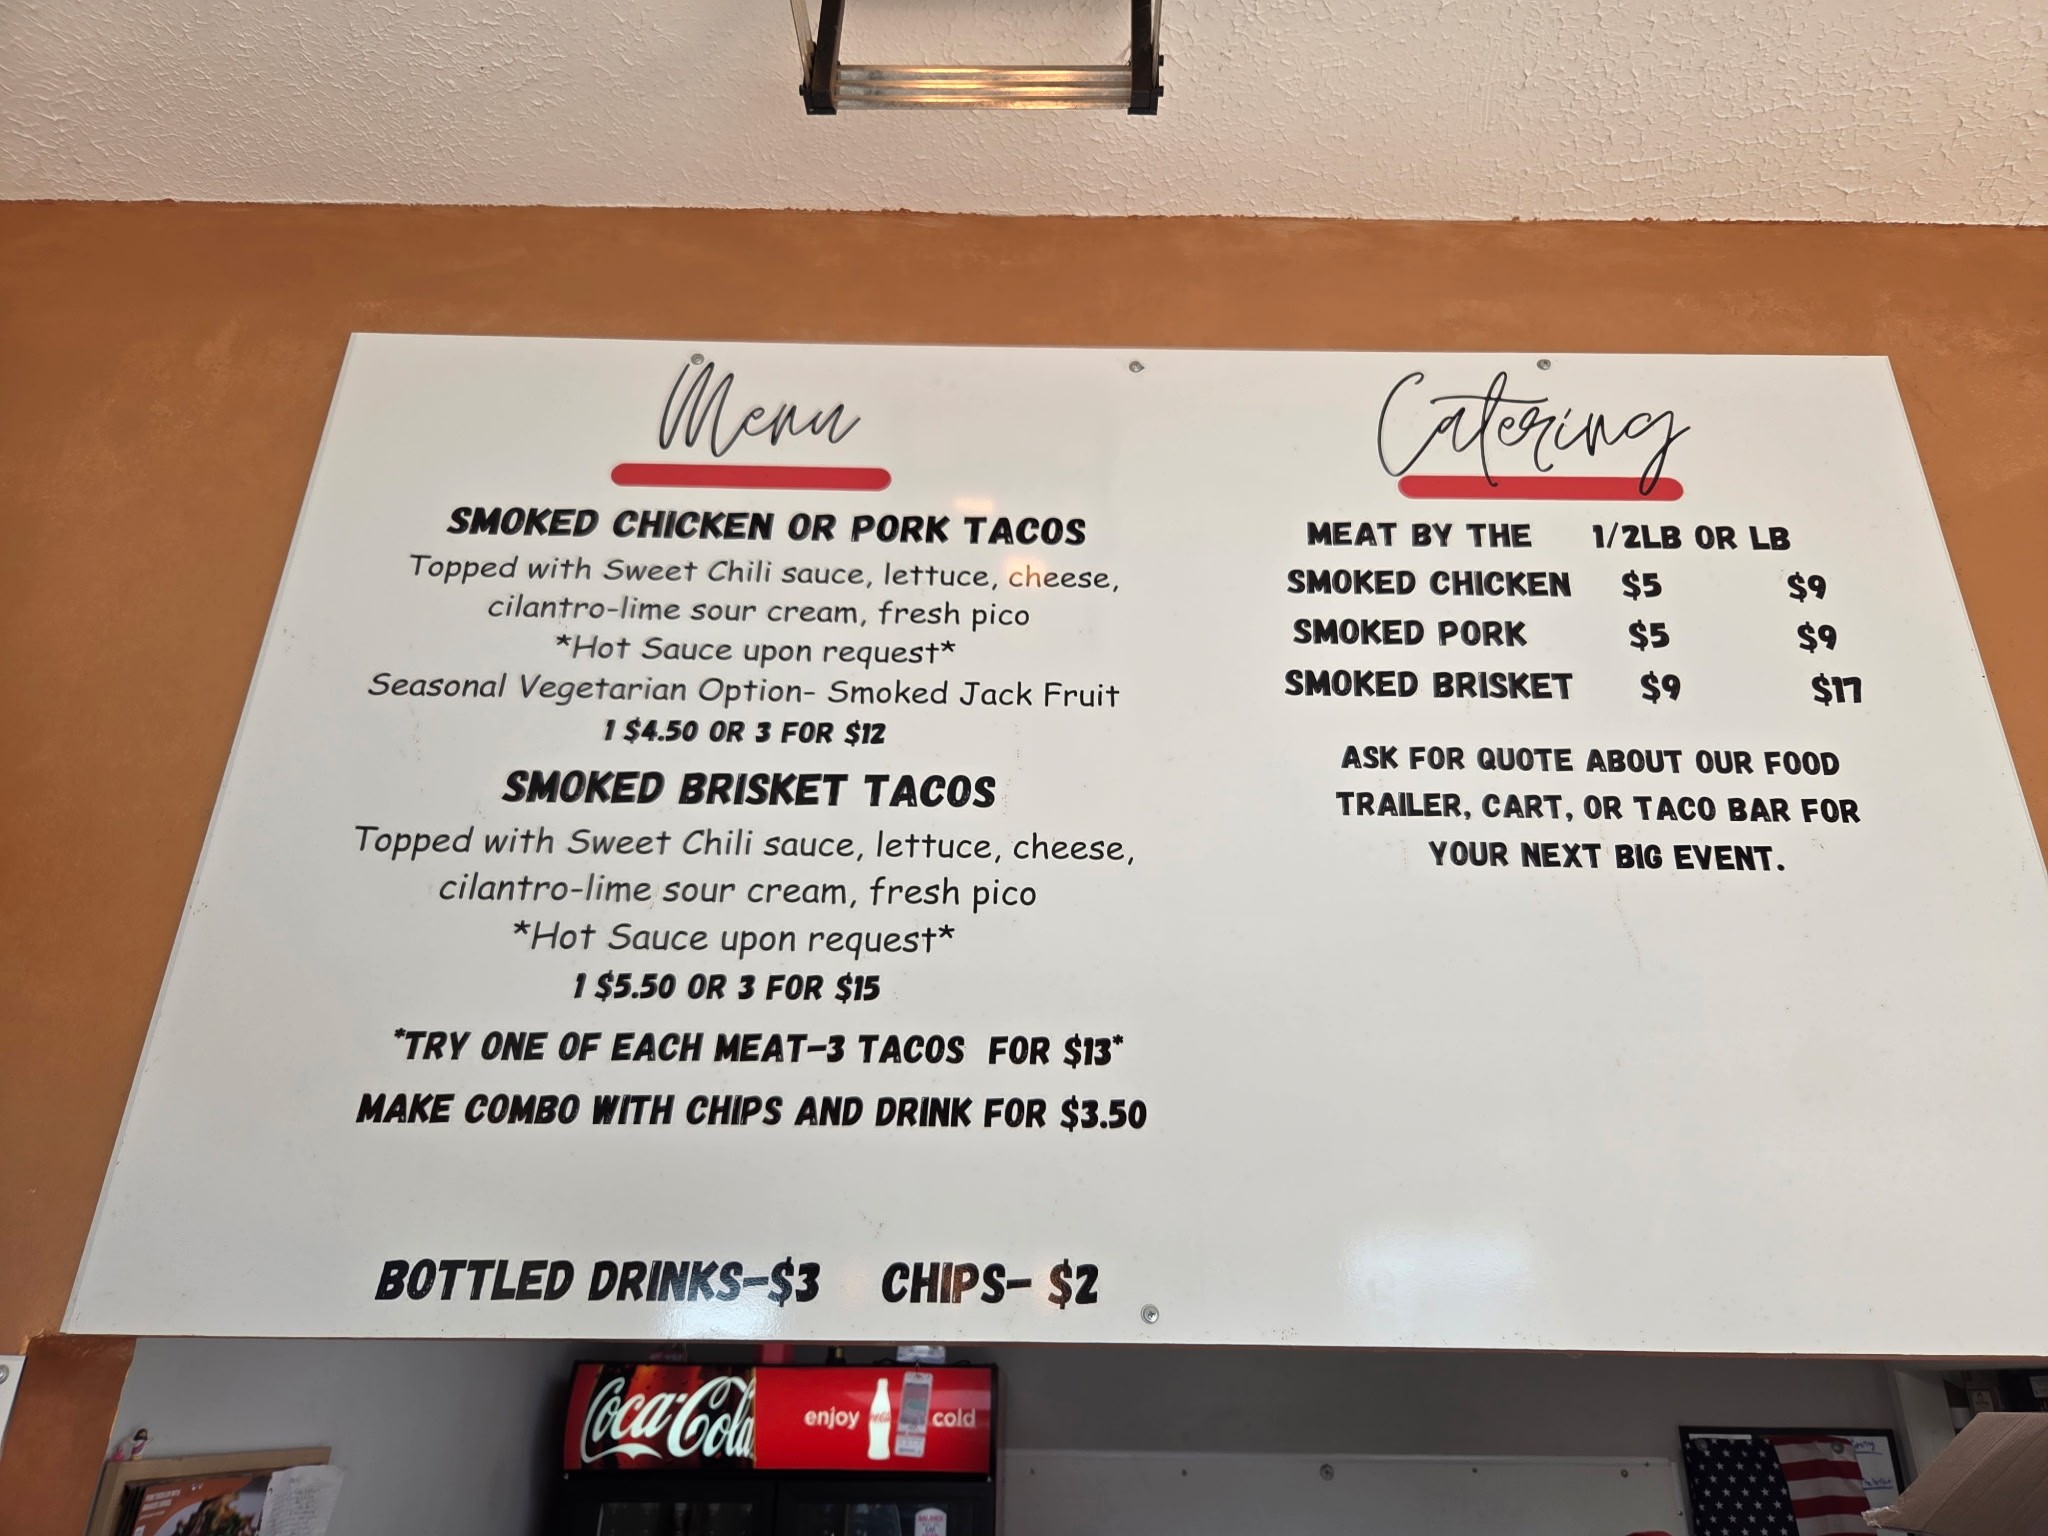 Menu
SMOKED CHICKEN OR PORK TACOS
Topped with Sweet Chili sauce, lettuce, cheese,
cilantro-lime sour cream, fresh pico
*Hot Sauce upon request*
Seasonal Vegetarian Option- Smoked Jack Fruit
1 $4.50 OR 3 FOR $12
SMOKED BRISKET TACOS
Topped with Sweet Chili sauce, lettuce, cheese,
cilantro-lime sour cream, fresh pico
*Hot Sauce upon request*
1 $5.50 OR 3 FOR $15
*TRY ONE OF EACH MEAT-3 TACOS FOR $13*
MAKE COMBO WITH CHIPS AND DRINK FOR $3.50
BOTTLED DRINKS-$3 CHIPS- $2
Catering
MEAT BY THE 1/2LB OR LB
SMOKED CHICKEN $5 $9
SMOKED PORK $5 $9
SMOKED BRISKET $9 $17
ASK FOR QUOTE ABOUT OUR FOOD
TRAILER, CART, OR TACO BAR FOR
YOUR NEXT BIG EVENT.
Coca-Cola enjoy cold